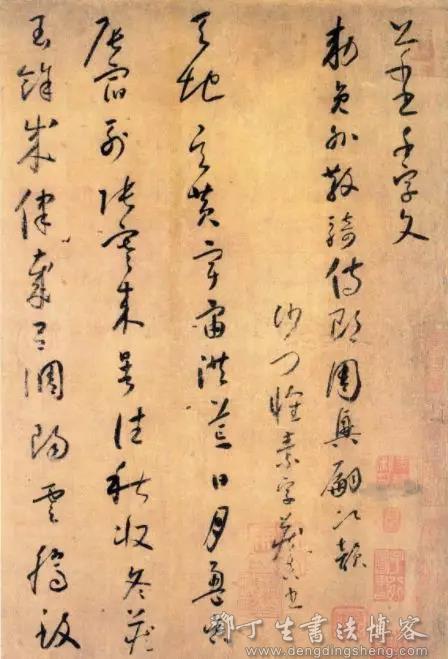 千字文
敕員外散騎侍郎周興嗣次韻
沙門懷素字藏真書
天地玄黃宇宙洪荒日月盈昃
辰宿列張寒來暑往秋收冬藏
閏餘成律歲呂調陽雲騰致
鄧丁生書法博客
www.dengdingsheng.com